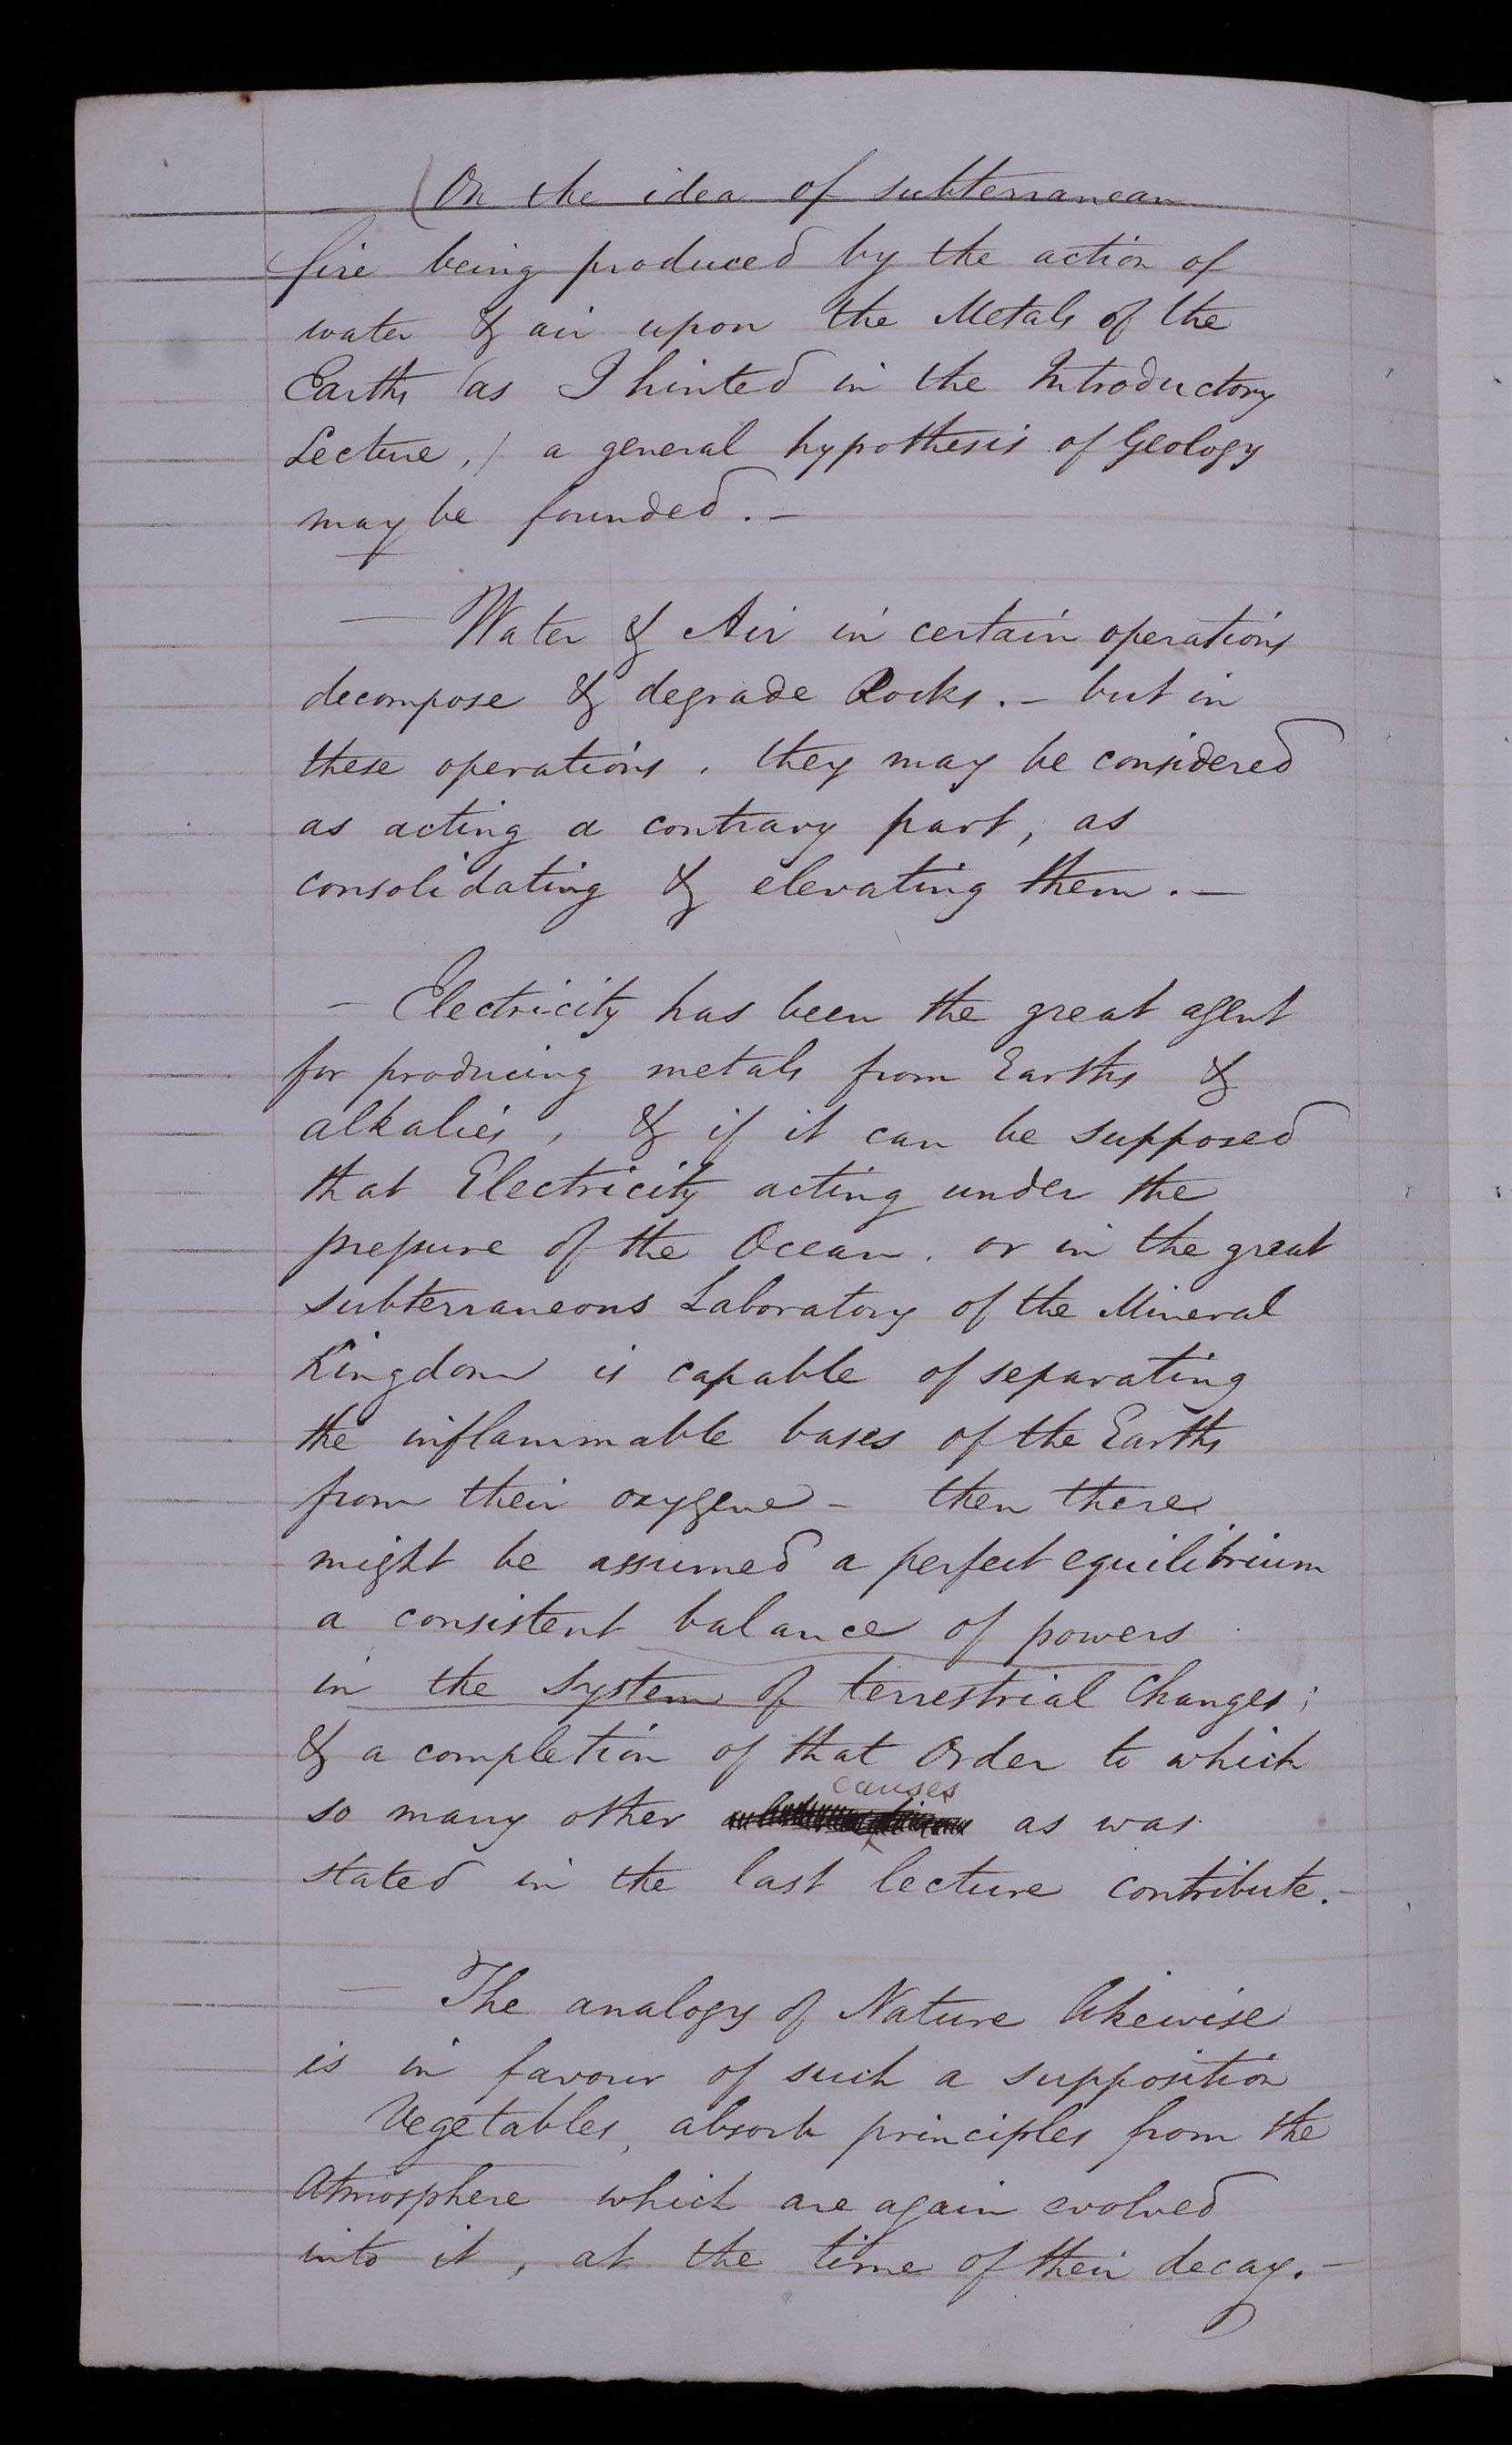 — (On the idea of subterranean
fire being produced by the action of
water & air upon the Metals of the
Earths (as I hinted in the Introductory
Lecture,) a general hypothesis of Geology
may be founded. —
— Water & Air in certain operations
decompose & degrade Rocks. – but in
these operations, they may be considered
as acting a contrary part, as
consolidating & elevating them. —
– Electricity has been the great agent
for producing metals from Earths &
alkalies, & if it can be supposed
that Electricity acting under the
preſsure of the Ocean. or in the great
subterraneous Laboratory of the Mineral
Kingdom is capable of separating
the inflammable bases of the Earths
from their oxygene – then there
might be assumed a perfect equilibrium
a consistent balance of powers
in the System of terrestrial Changes;
& a completion of that Order to which
causes
so many other as was
stated in the last lecture contribute. –
— The analogy of Nature likewise
is in favour of such a supposition
Vegetables, absorb principles from the
Atmosphere which are again evolved
into it, at the time of their decay. –